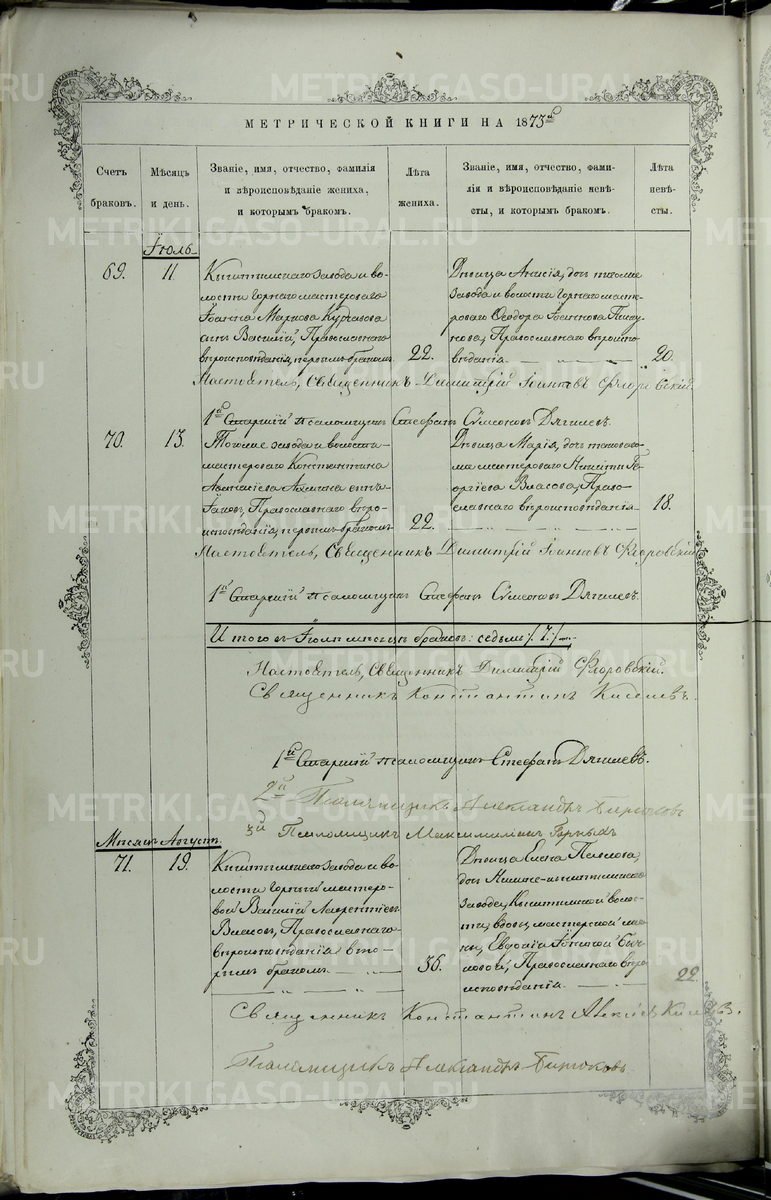 МЕТРИЧЕСКОЙ КНИГИ НА 1873й
Счетъ браковъ.
Мѣсяцъ и день.
Званіе, имя, отчество, фамилія
и вѣроисповѣданіе жениха,
и которымъ бракомъ.
Лѣта жениха.
Званіе, имя, отчество, фами-
лія и вѣроисповѣданіе невѣ-
сты, и которымъ бракомъ.
Лѣта невѣ-
сты.
Іюль
69.
11.
Кыштымскаго завода и во-
лости горнаго мастероваго
Іоанна Маркова
сынъ Василій, Православнаго
вѣроисповѣданія, первымъ бракомъ.
22.
Дѣвица Анисія, дочь тогоже
завода и волости горнаго масте-
роваго Ѳеодора Іоаннова
Православнаго вѣроиспо-
вѣданія.
20.
Настоятель, Священникъ Димитрій Іоанновъ Флоровскій.
1й Старшій псаломщикъ Стефанъ Сѵмеоновъ Дягилевъ.
70.
13.
Тогоже завода и волости
мастероваго Константина
Аѳанасіева сынъ
Іаковъ, Православнаго вѣро-
исповѣданія, первымъ бракомъ
22.
Дѣвица Марія, дочь таковаго-
же мастероваго Никиты Ге-
оргіева Власова, Право-
славнаго вѣроисповѣданія
18.
Настоятель, Священникъ Димитрій Іоанновъ Флоровскій
1й Старшій псаломщикъ Стефанъ Сѵмеоновъ Дягилевъ.
Итого въ Іюлѣ мѣсяцѣ браковъ: седьмь /7./
Настоятель, Священникъ Димитрій Флоровскій.
Священникъ Константинъ Киселевъ.
1й Старшій псаломщикъ Стефанъ Дягилевъ.
2й Псаломщикъ Александръ Бирюковъ
3й Псаломщикъ Максимиліанъ Горныхъ
Мѣсяцъ Августъ.
71.
19.
Кыштымскаго завода и во-
лости горный мастеро-
вой Василій Лаврентіевъ
Власовъ, Православнаго
вѣроисповѣданія вто-
рымъ бракомъ.
36.
Дѣвица Елена Павлова,
дочь Нижне-кыштымскаго
завода, Кыштымской волос-
ти, вдовы мастерской же-
ны, Евдокіи
Православнаго вѣро-
исповѣданія.
22.
Священникъ Константинъ Алексіевъ Киселевъ.
Псаломщикъ Александръ Бирюковъ
METRIKI.GASO-URAL.RU